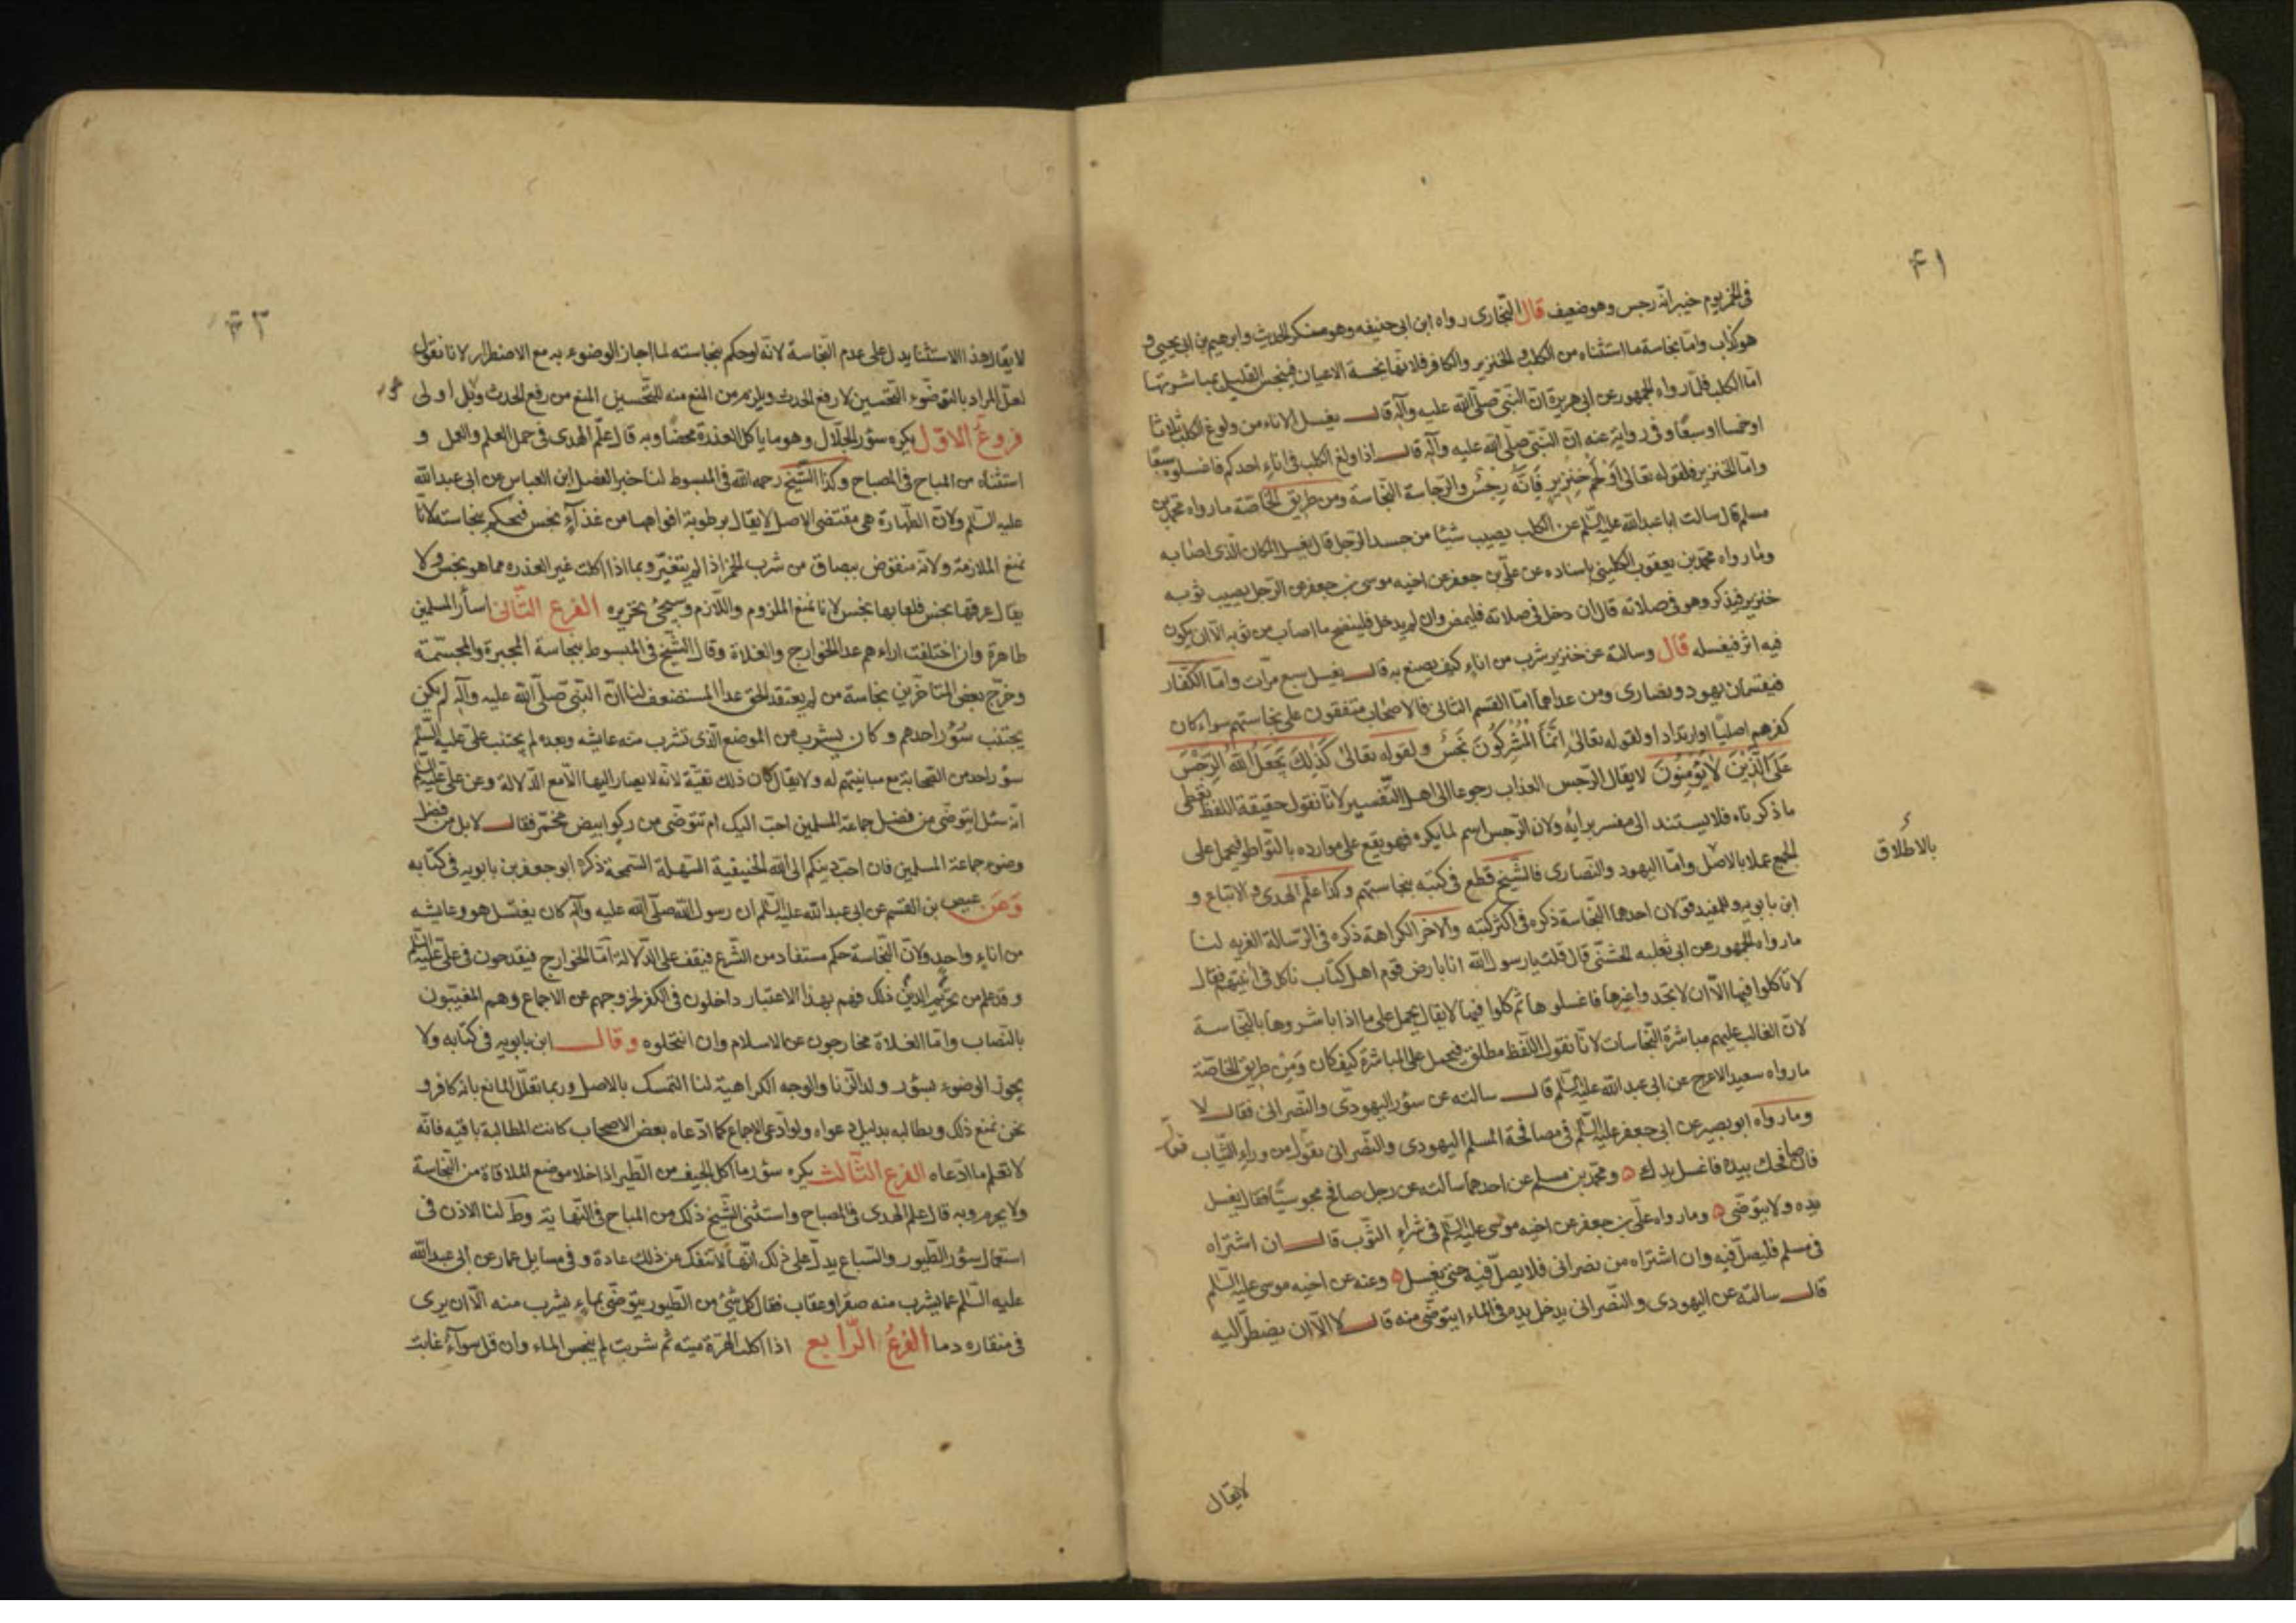 ۴۱
فی الخمر یوم خیبر انه رجس وهو ضعیف قال البخاری رواه ابن ابی حنیفه وهو منکر الحدیث وابرهیم بن ابی یحیی و
هو کذاب واما نجاسة ما استثناه من الکلب والخنزیر والکافر فلانها نجسة الاعیان فینجس القلیل بمباشرتها
اما الکلب فلما رواه الجمهور عن ابی هریرة ان النبی صلی الله علیه وآله قال یغسل الاناء من ولوغ الکلب ثلاثا
او خمسا او سبعا وفی روایة عنه ان النبی صلی الله علیه وآله قال اذا ولغ الکلب فی اناء احدکم فاغسلوه سبعا
واما الخنزیر فلقوله تعالی او لحم خنزیر فانه رجس والرجاسة النجاسة ومن طریق الخاصة ما رواه محمد بن
مسلم قال سالت ابا عبدالله علیه السلم عن الکلب یصیب شیئا من جسد الرجل قال یغسل المکان الذی اصابه
وما رواه محمد بن یعقوب الکلینی باسناده عن علی بن جعفر عن اخیه موسی بن جعفر عن الرجل یصیب ثوبه
خنزیر فیذکر وهو فی صلاته قال ان دخل فی صلاته فلیمض وان لم یدخل فلینضح ما اصاب من ثوبه الا ان یکون
فیه اثر فیغسله قال وسالته عن خنزیر شرب من اناء کیف یصنع به قال یغسل سبع مرات واما الکفار
فیقسمان یهود ونصاری ومن عداهما اما القسم الثانی فالاصحاب متفقون علی نجاستهم سواء کان
کفرهم اصلیا او ارتدادا ولقوله تعالی انما المشرکون نجس ولقوله تعالی کذلک یجعل الله الرجس
علی الذین لا یؤمنون لا یقال الرجس العذاب رجوعا الی اهل التفسیر لانا نقول حقیقة اللفظ یعطی
ما ذکرناه فلا یستند الی مفسر برأیه ولان الرجس اسم لما یکره فهو یقع علی موارده بالتواطؤ فیحمل علی
بالاطلاق
الجمیع عملا بالاصل واما الیهود والنصاری فالشیخ قطع فی کتبه بنجاستهم وکذا علم الهدی والاتباع و
ابن بابویه وللمفید قولان احدهما النجاسة ذکره فی اکثر کتبه والاخر الکراهة ذکره فی الرسالة الغریه لنا
ما رواه الجمهور عن ابی ثعلبه الخشنی قال قلت یا رسول الله انا بارض قوم اهل کتاب ناکل فی آنیتهم فقال
لا تاکلوا فیها الا ان لا تجدوا غیرها فاغسلوها ثم کلوا فیها لا یقال یحمل علی ما اذا باشروها بالنجاسة
لان الغالب علیهم مباشرة النجاسات لانا نقول اللفظ مطلق فیحمل علی المباشرة کیف کان ومن طریق الخاصة
ما رواه سعید الاعرج عن ابی عبدالله علیه السلم قال سالته عن سؤر الیهودی والنصرانی فقال لا
وما رواه ابو بصیر عن ابی جعفر علیه السلم فی مصافحة المسلم الیهودی والنصرانی یقول من وراء الثیاب
فان صافحک بیده فاغسل یدک ومحمد بن مسلم عن احدهما سالته عن رجل صافح مجوسیا فقال یغسل
یده ولا یتوضی وما رواه علی بن جعفر عن اخیه موسی علیه السلم فی شراء الثوب قال ان اشتراه
فی مسلم فلیصل فیه وان اشتراه من نصرانی فلا یصل فیه حتی یغسل وعنه عن اخیه موسی علیه السلم
قال سالته عن الیهودی والنصرانی یدخل یده فی الماء ایتوضی منه قال لا الا ان یضطر الیه
لا یقال
لا یقال هذا الاستثنا یدل علی عدم النجاسة لانه لو حکم بنجاسته لما اجاز الوضوء به مع الاضطرار لانا نقول
لعل المراد بالتوضوء التحسین لا رفع الحدث ویلزم من المنع منه للتحسین المنع من رفع الحدث وبل اولی
فروع الاول یکره سؤر الجلال وهو ما یاکل العذرة محضا وبه قال علم الهدی فی جمل العلم والعمل و
استثناه من المباح فی المصباح وکذا الشیخ رحمه الله فی المبسوط لنا خبر الفضل ابن العباس عن ابی عبدالله
علیه السلم ولان الطهارة هی مقتضی الاصل لا یقال برطوبة افواهها من غذاء نجس فیحکم بنجاسته لانا
نمنع الملازمة ولانه منقوض ببصاق من شرب الخمر اذا لم یتغیر وبما اذا اکلت غیر العذره مما هو نجس ولا
یقال عرقها نجس فلعابها نجس لانا نمنع الملزوم واللازم وسیجئ تحریره الفرع الثانی اسأر المسلمین
طاهرة وان اختلفت اراءهم عدا الخوارج والغلاة وقال الشیخ فی المبسوط بنجاسة المجبرة والمجسمة
وخرج بعض المتاخرین نجاسة من لم یعتقد الحق عدا المستضعف لنا ان النبی صلی الله علیه وآله لم یکن
یجتنب سؤر احدهم وکان یشرب من الموضع الذی تشرب منه عایشه وبعده لم یجتنب علی علیه السلم
سؤر احد من الصحابة مع مباینتهم له ولا یقال کان ذلک تقیة لانه لا یصار الیها الا مع الدلالة وعن علی علیه السلم
انه سئل ایتوضی من فضل جماعة المسلمین احب الیک ام تتوضی من رکو ابیض مخمر فقال لا بل من فضل
وضوء جماعة المسلمین فان احب دینکم الی الله الحنیفیة السهلة السمحة ذکره ابو جعفر بن بابویه فی کتابه
وعن عیص بن القسم عن ابی عبدالله علیه السلم ان رسول الله صلی الله علیه وآله کان یغتسل هو وعایشه
من اناء واحد ولان النجاسة حکم مستفاد من الشرع فیقف علی الدلالة اما الخوارج فیقدحون فی علی علیه السلم
وقد علم من الدین تحریم ذلک فهم بهذا الاعتبار داخلون فی الکفر لخروجهم عن الاجماع وهم المعنیون
بالنصاب واما الغلاة فخارجون عن الاسلام وان انتحلوه وقال ابن بابویه فی کتابه ولا
یجوز الوضوء بسؤر ولد الزنا والوجه الکراهیة لنا التمسک بالاصل وربما تعلل المانع بانه کافر و
نحن نمنع ذلک ونطالبه بدلیل دعواه ولو ادعی الاجماع کما ادعاه بعض الاصحاب کانت المطالبة باقیه فانه
لا نعلم ما ادعاه الفرع الثالث یکره سؤر ما اکل الجیف من الطیر اذا خلا موضع الملاقاة من النجاسة
ولا یحرم وبه قال علم الهدی فی المصباح واستثنی الشیخ ذلک من المباح فی النهایة وط لنا الاذن فی
استعمال سؤر الطیور والسباع یدل علی ذلک انها لا تنفک عن ذلک عادة وفی مسایل عمار عن ابی عبدالله
علیه السلم عما یشرب منه صقر او عقاب فقال کل شئ من الطیور یتوضی بماء یشرب منه الا ان یری
فی منقاره دما الفرع الرابع اذا اکلت الهرة میته ثم شربت لم ینجس الماء وان قل سواء غابت